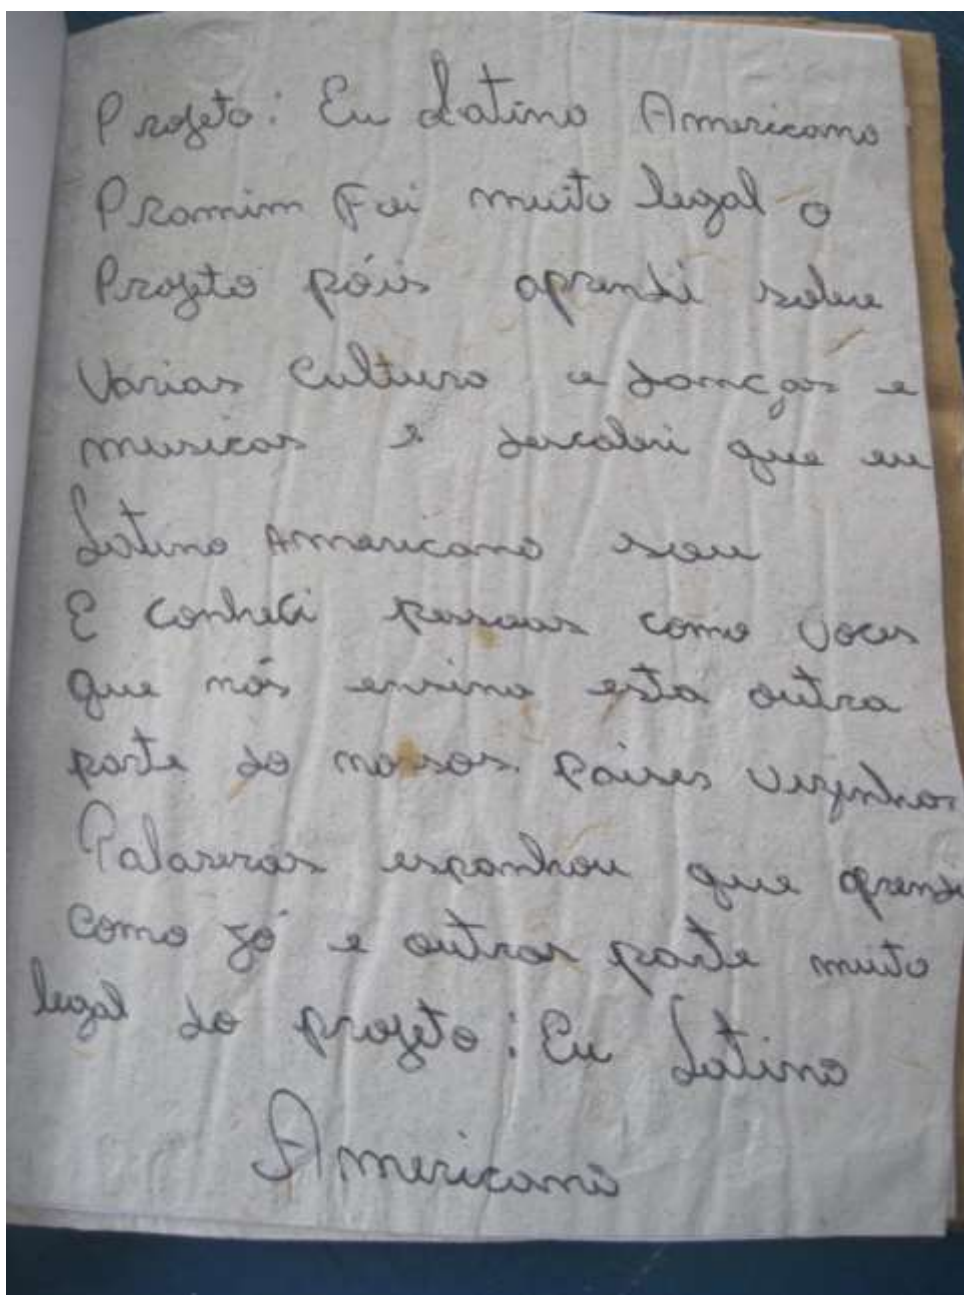 Projeto: Eu Latino Americano
Pramim Foi muito legal o
Projeto póis aprendi sobre
Varias Cultura e danças e
musicas e descobri que eu
Latino Americano sou
E conheci pessoas como voces
que nós ensina esta outra
parte do nossos países vizinhos
Palavras espanhou que aprendi
como yó e outras parte muito
legal do projeto: Eu Latino
Americano